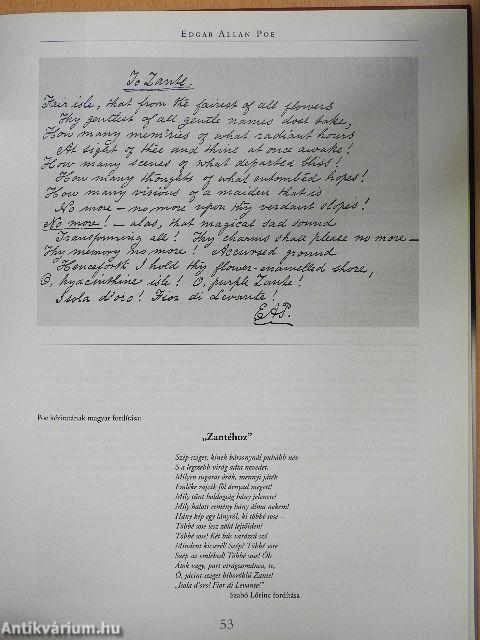 EDGAR ALLAN POE
To Zante.
Fair isle, that from the fairest of all flowers
Thy gentlest of all gentle names dost take,
How many mem'ries of what radiant hours
At sight of thee and thine at once awake!
How many scenes of what departed bliss!
How many thoughts of what entombéd hopes!
How many visions of a maiden that is
No more – no more upon thy verdant slopes!
No more! – alas, that magical sad sound
Transforming all! Thy charms shall please no more –
Thy memory no more! Accursed ground
Henceforth I hold thy flower-enamelled shore,
O, hyacinthine isle! O, purple Zante!
Isola d'oro! Fior di Levante!
EAP.
Poe kéziratának magyar fordítása:
„Zantéhoz”
Szép sziget, kinek bársonynál puhább név
S a legszebb virág adta nevedet,
Milyen sugaras órák, mennyi játék
Emléke rajzik föl benned megett!
Mily tűnt boldogság hány jelenete!
Mily halott remény hány álma nekem!
Hány kép egy lányról, ki többé sose –
Többé sose lesz zöld lejtőiden!
Többé sose! Két bús varázsú szó
Mindent kicserél! Szép? Többé sose
Szép az emléked! Többé sose! Óh
Átok vagy, part virágzománca, te,
Ó, jácint-sziget bíborőblű Zante!
„Isola d'oro! Fior di Levante!”
Szabó Lőrinc fordítása
53
Antikvárium.hu